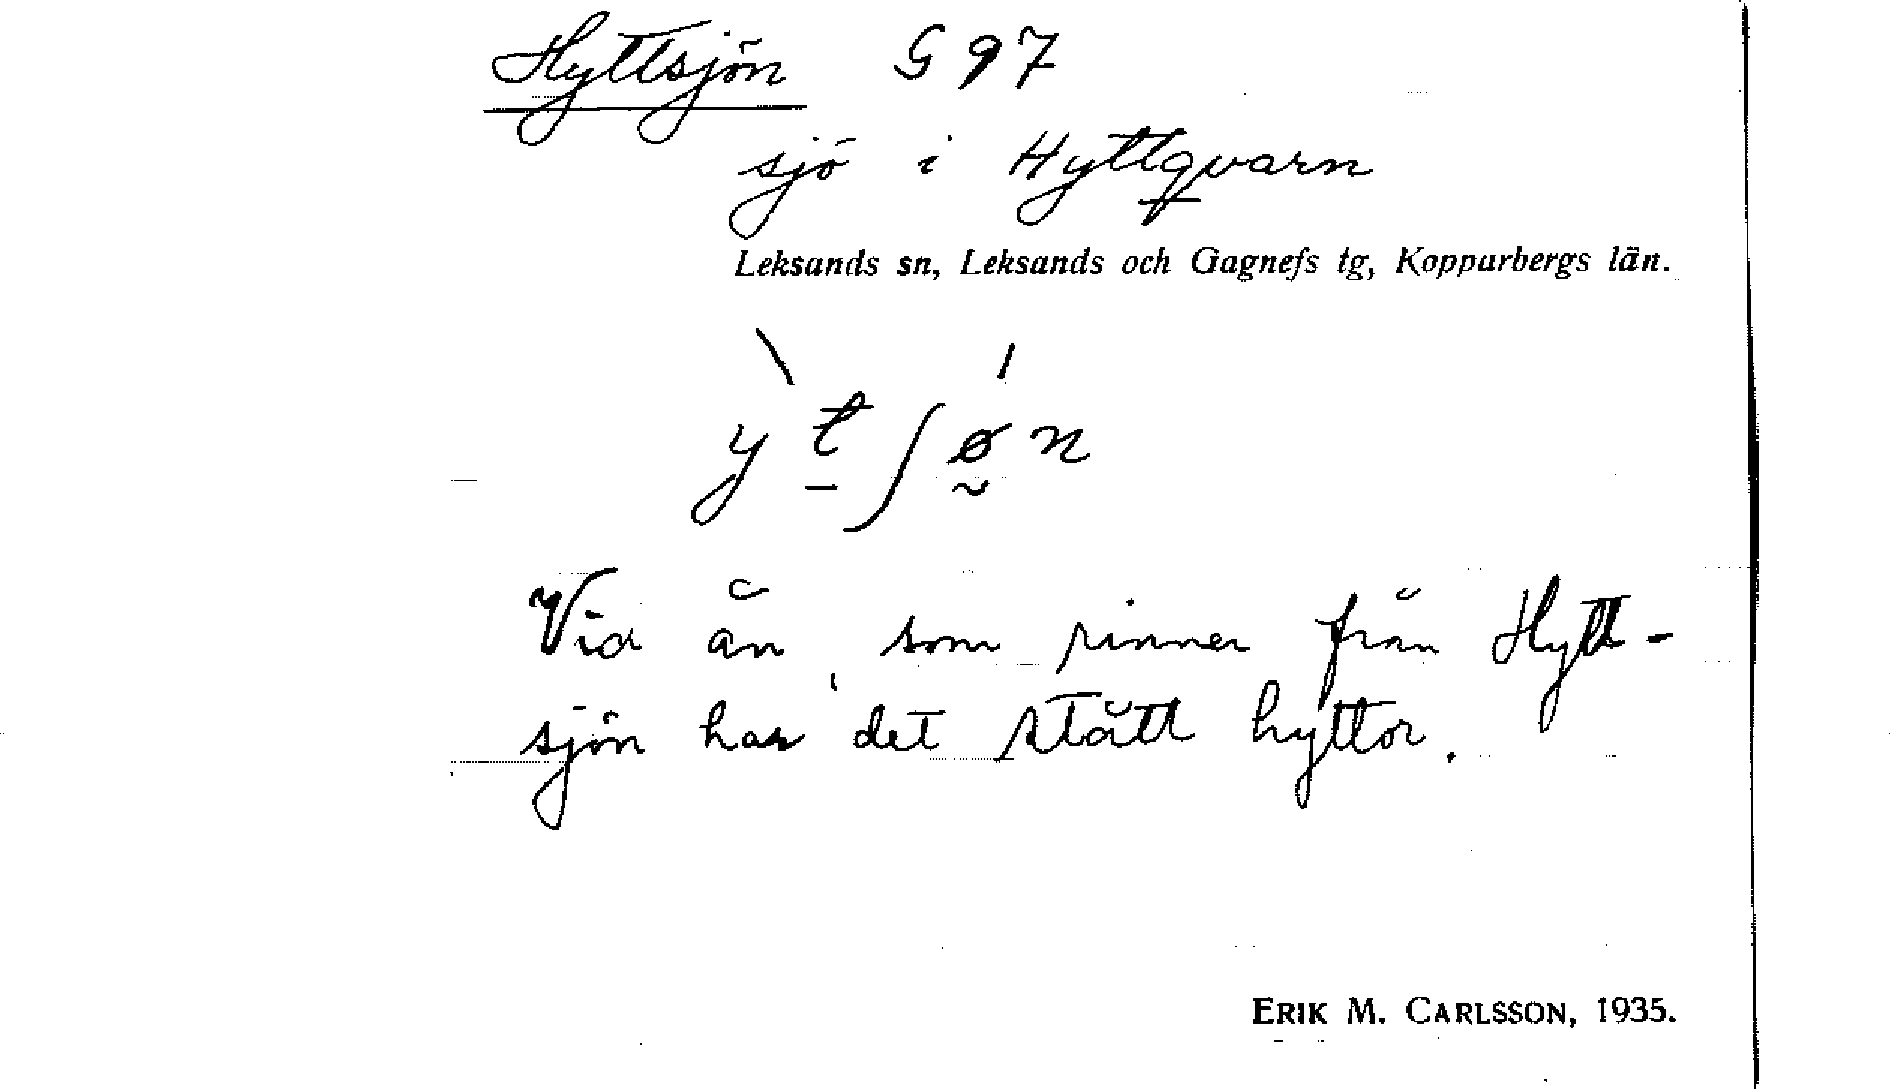 Hyttsjön G 97
sjö i Hyttqvarn
Leksands sn, Leksands och Gagnefs tg, Kopparbergs län.
y t ʃ ø n
Vid ån, som rinner från Hytt-
sjön har det stått hyttor.
ERIK M. CARLSSON, 1935.